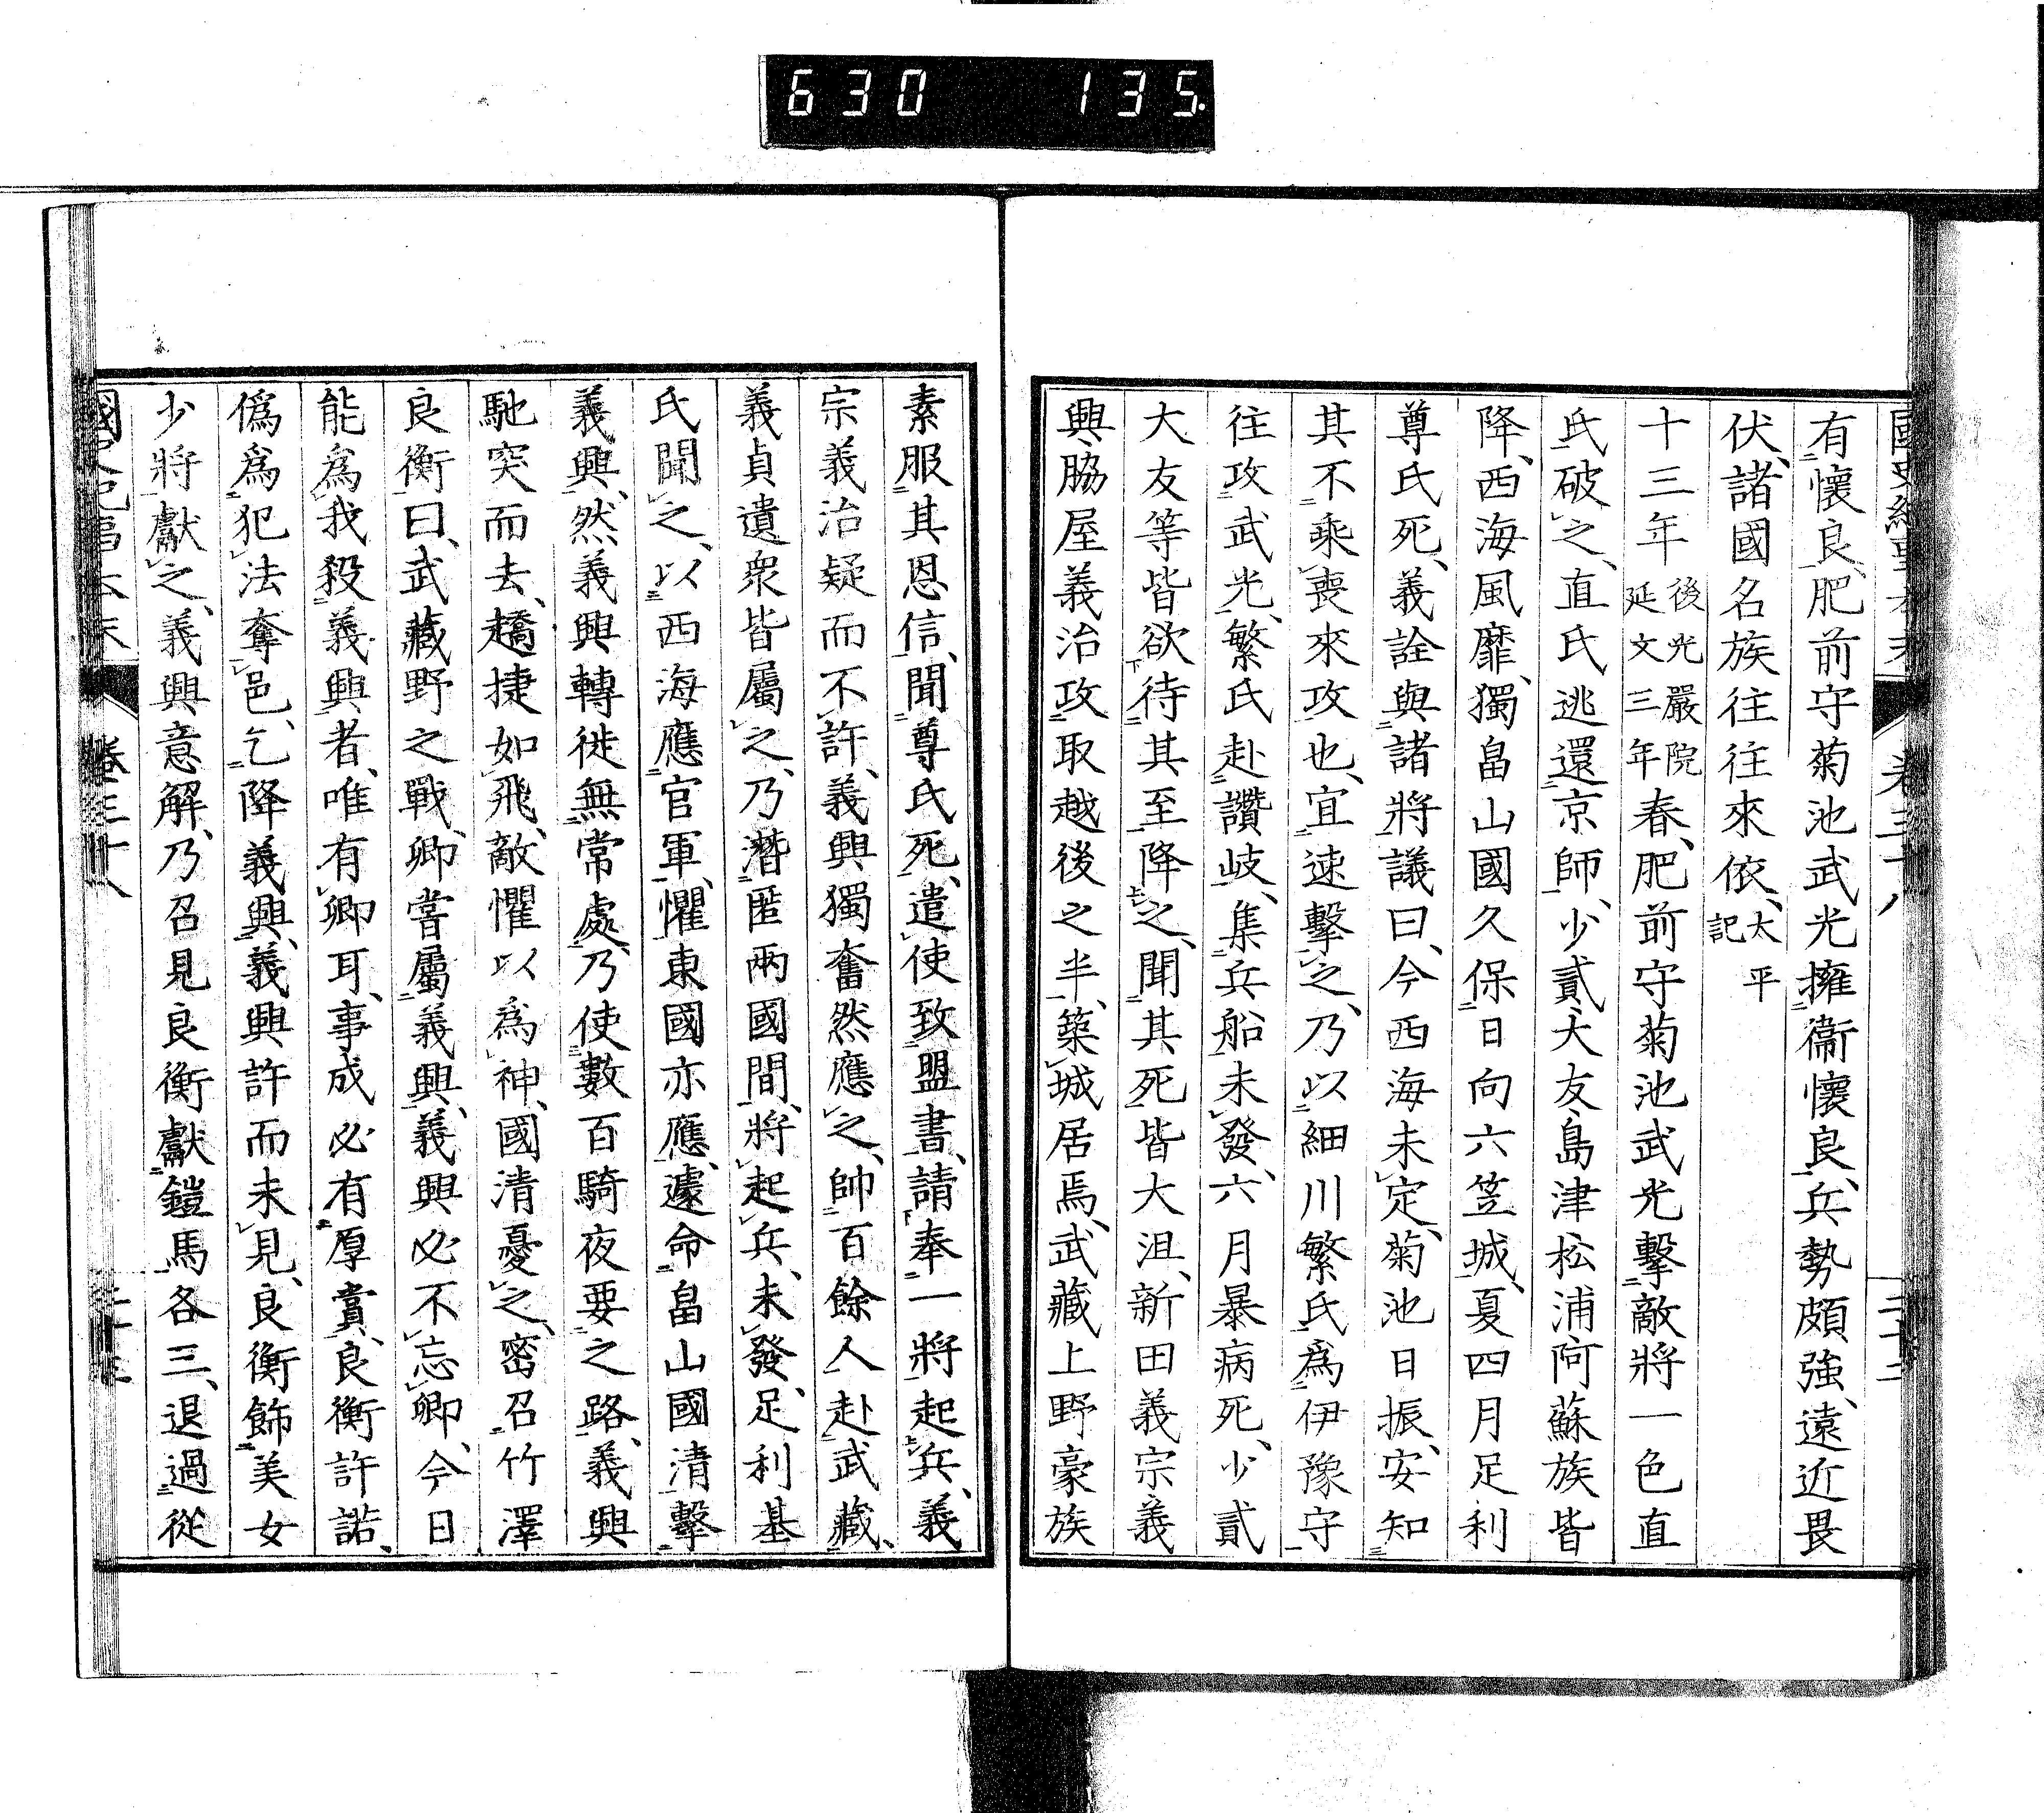 630 135
國史紀事本末 卷三十八
有懷良、肥前守菊池武光擁衞懷良、兵勢頗強、遠近畏
伏、諸國名族往往來依、太平記
十三年後光嚴院延文三年春、肥前守菊池武光擊敵將一色直
氏破之、直氏逃還京師、少貳大友島津松浦阿蘇族皆
降、西海風靡、獨畠山國久保日向六笠城、夏四月足利
尊氏死、義詮與諸將議曰、今西海未定、菊池日振、安知
其不乘喪來攻也、宜速擊之、乃以細川繁氏爲伊豫守
往攻武光、繁氏赴讚岐、集兵船未發、六月暴病死、少貳
大友等皆欲待其至降之、聞其死皆大沮、新田義宗義
興、脇屋義治攻取越後之半、築城居焉、武藏上野豪族
素服其恩信、聞尊氏死、遣使致盟書、請奉一將起兵、義
宗義治疑而不許、義興獨奮然應之、帥百餘人赴武藏、
義貞遺衆皆屬之、乃潛匿兩國間、將起兵、未發、足利基
氏聞之、以西海應官軍、懼東國亦應、遽命畠山國清擊
義興、然義興轉徙無常處、乃使數百騎夜要之路、義興
馳突而去、趫捷如飛、敵懼以爲神、國清憂之、密召竹澤
良衡曰、武藏野之戰、卿嘗屬義興、義興必不忘卿、今日
能爲我殺義興者、唯有卿耳、事成必有厚賞、良衡許諾、
僞爲犯法奪邑、乞降義興、義興許而未見、良衡飾美女
少將獻之、義興意解、乃召見良衡獻鎧馬各三、退過從
國史紀事本末 卷三十八